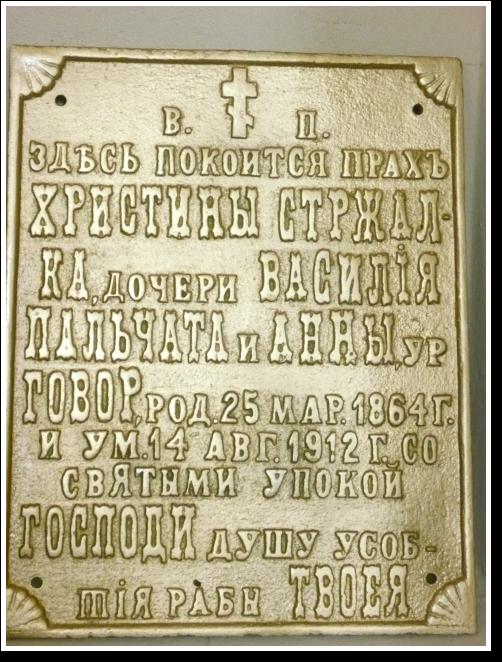 В. П.
ЗДѢСЬ ПОКОИТСЯ ПРАХЪ
ХРИСТИНЫ СТРЖАЛ-
КА, ДОЧЕРИ ВАСИЛІЯ
ПАЛЬЧАТА И АННЫ, УР
ГОВОР, РОД. 25 МАР. 1864 Г.
И УМ. 14 АВГ. 1912 Г. СО
СВЯТЫМИ УПОКОЙ
ГОСПОДИ ДУШУ УСОБ-
ШІЯ РАБЫ ТВОЕЯ